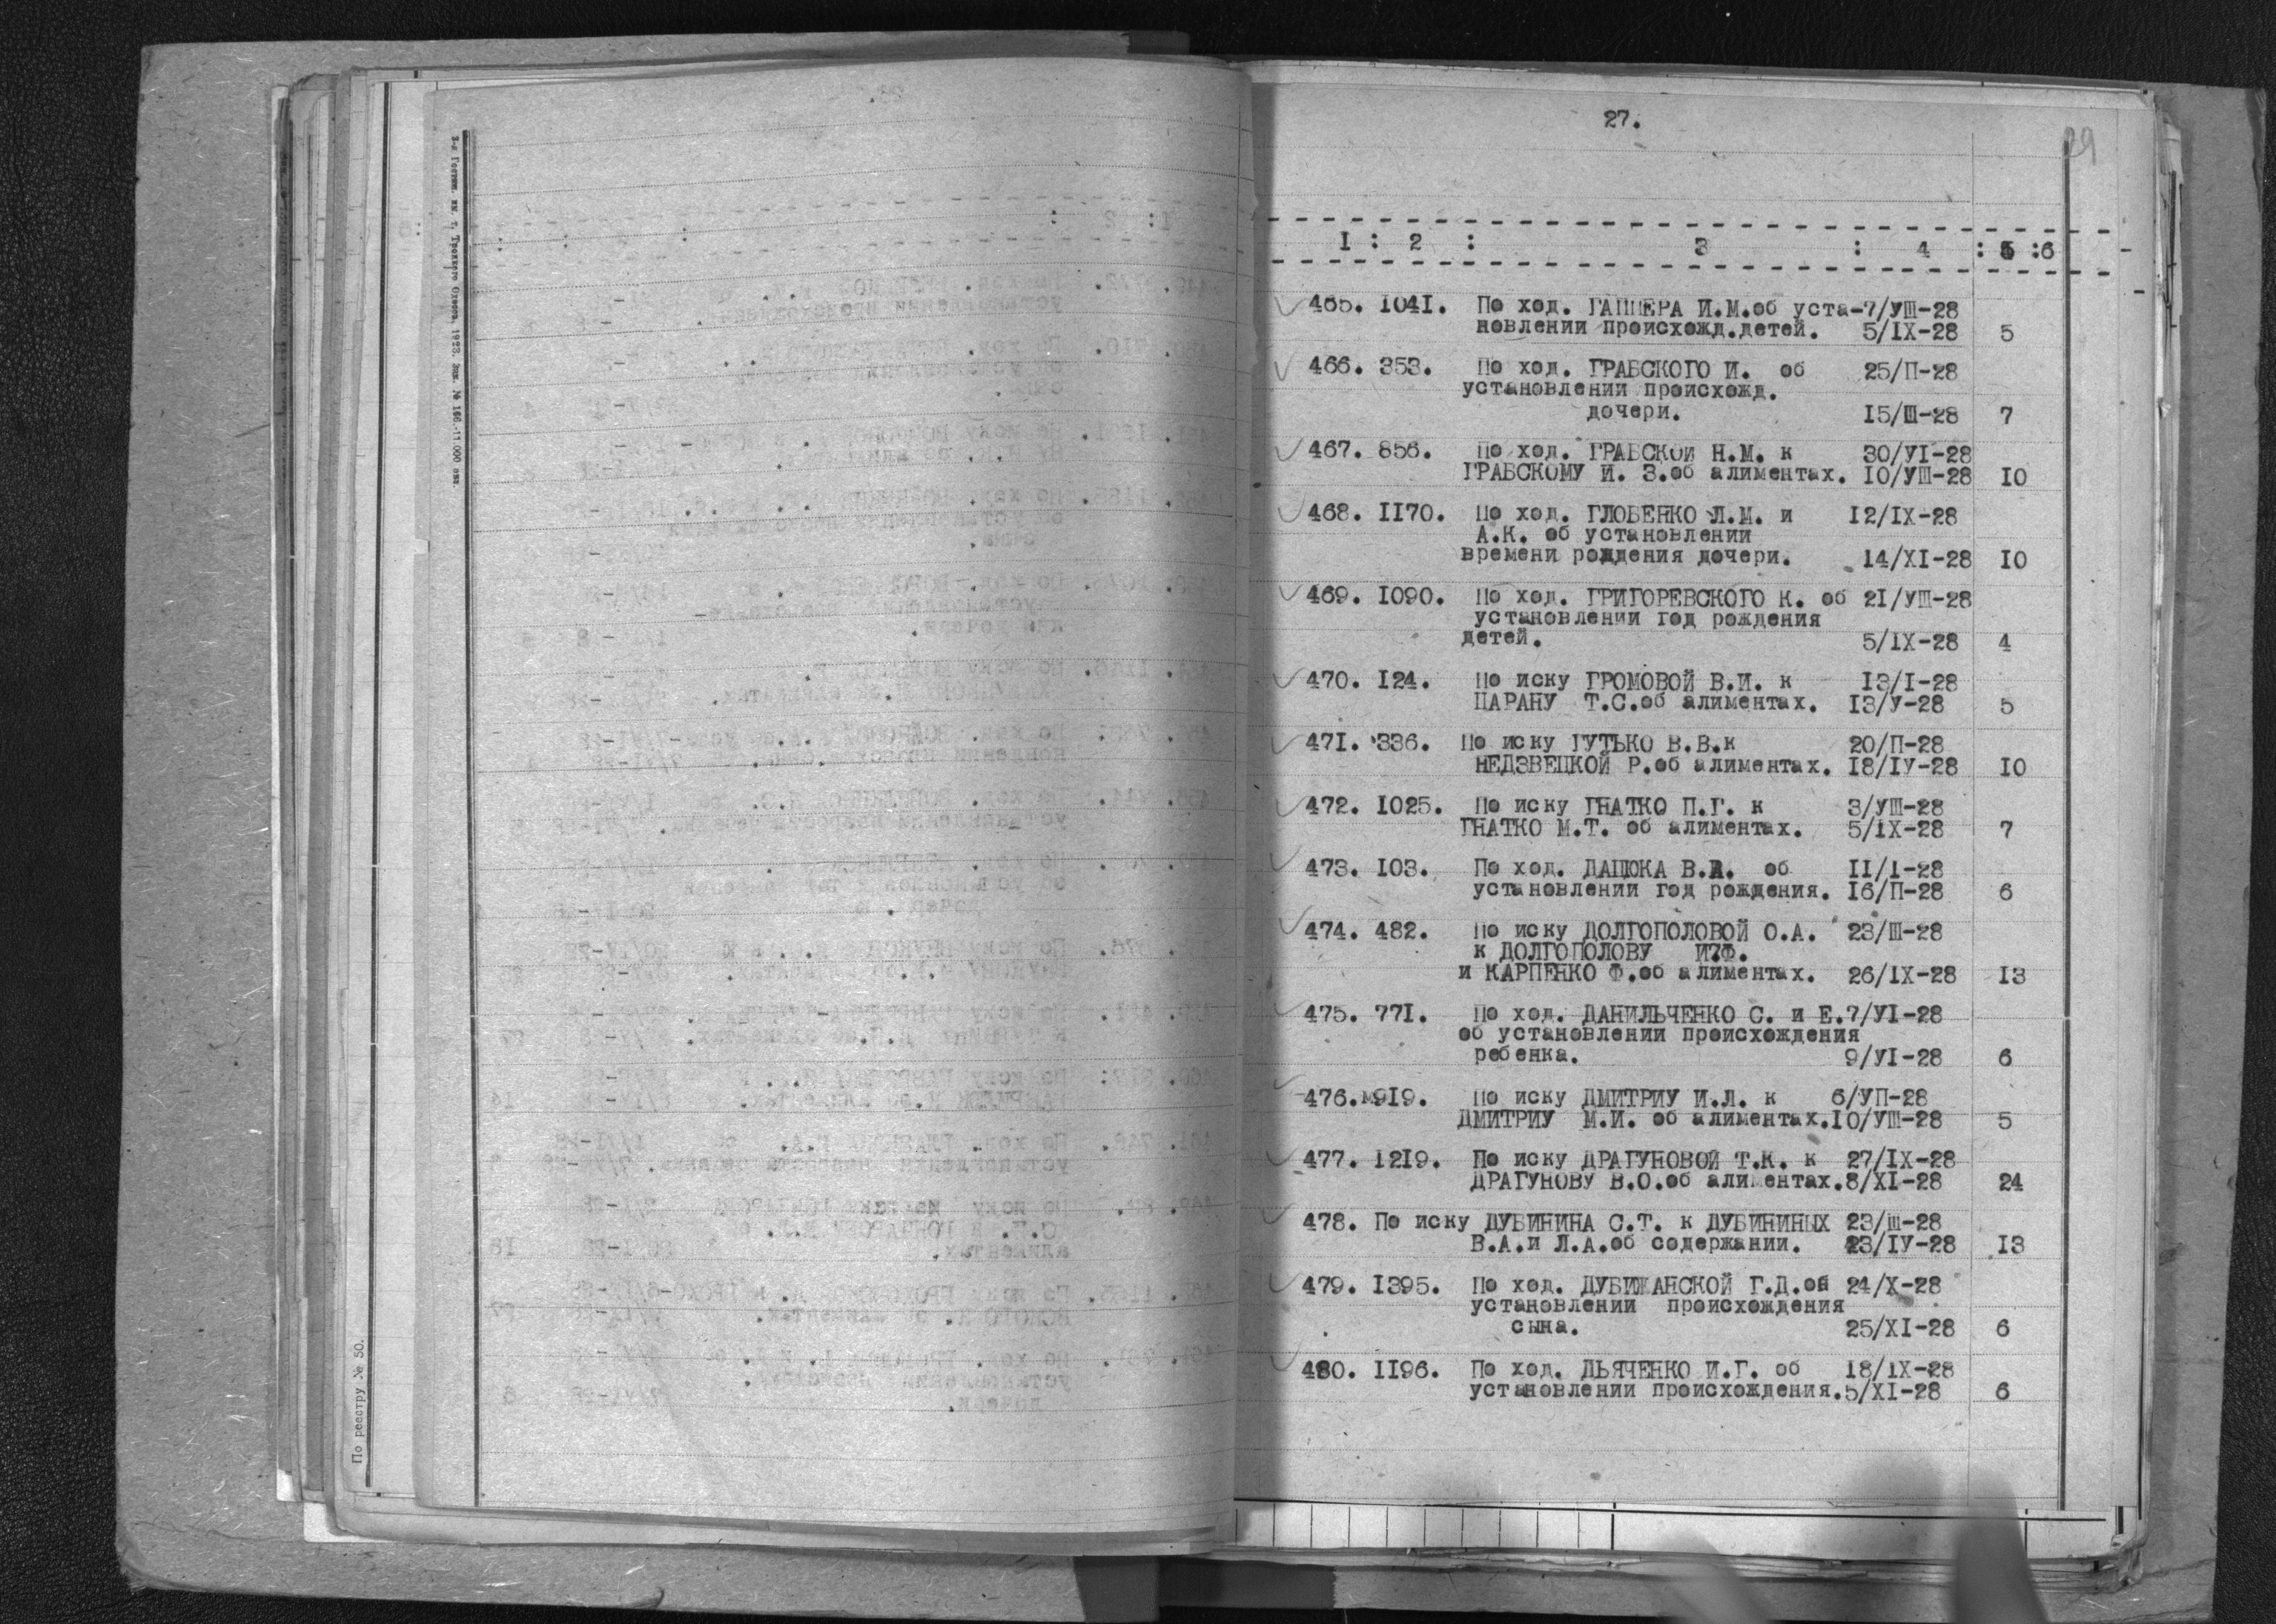 3-я Гостип. им. т. Троцкого Одесса, 1923. Зак. № 166.-11.000 экз.
По реестру № 50.
27.
29
I : 2 : 3 : 4 : 5 :6
465. I04I. По ход. ГАППЕРА И.М.об уста-7/УШ-28
новлении происхожд.детей. 5/IX-28 5
466. 353. По ход. ГРАБСКОГО И. об 25/П-28
установлении происхожд.
дочери. I5/Ш-28 7
467. 856. По ход. ГРАБСКОЙ Н.М. к 30/УI-28
ГРАБСКОМУ И. З.об алиментах. I0/УШ-28 I0
468. II70. По ход. ГЛОБЕНКО Л.М. и I2/IX-28
А.К. об установлении
времени рождения дочери. I4/XI-28 I0
469. I090. По ход. ГРИГОРЕВСКОГО К. об 2I/УШ-28
установлении год рождения
детей. 5/IX-28 4
470. I24. По иску ГРОМОВОЙ В.И. к I3/I-28
ЦАРАНУ Т.С.об алиментах. I3/У-28 5
47I. 336. По иску ГУТЬКО В.В.к 20/П-28
НЕДЗВЕЦКОЙ Р.об алиментах. I8/IУ-28 I0
472. I025. По иску ГНАТКО П.Г. к 3/УШ-28
ГНАТКО М.Т. об алиментах. 5/IX-28 7
473. I03. По ход. ДАЦЮКА В.Д. об II/I-28
установлении год рождения. I6/П-28 6
474. 482. По иску ДОЛГОПОЛОВОЙ О.А. 23/Ш-28
к ДОЛГОПОЛОВУ И?Ф.
и КАРПЕНКО Ф.об алиментах. 26/IX-28 I3
475. 77I. По ход. ДАНИЛЬЧЕНКО С. и Е.7/УI-28
об установлении происхождения
ребенка. 9/УI-28 6
476. 9I9. По иску ДМИТРИУ И.Л. к 6/УП-28
ДМИТРИУ М.И. об алиментах.I0/УШ-28 5
477. I2I9. По иску ДРАГУНОВОЙ Т.К. к 27/IX-28
ДРАГУНОВУ В.О.об алиментах.8/XI-28 24
478. По иску ДУБИНИНА С.Т. к ДУБИНИНЫХ 23/Ш-28
В.А.и Л.А.об содержании. 23/IУ-28 I3
479. I395. По ход. ДУБИЖАНСКОЙ Г.Д.об 24/X-28
установлении происхождения
сына. 25/XI-28 6
480. II96. По ход. ДЬЯЧЕНКО И.Г. об I8/IX-28
установлении происхождения.5/XI-28 6